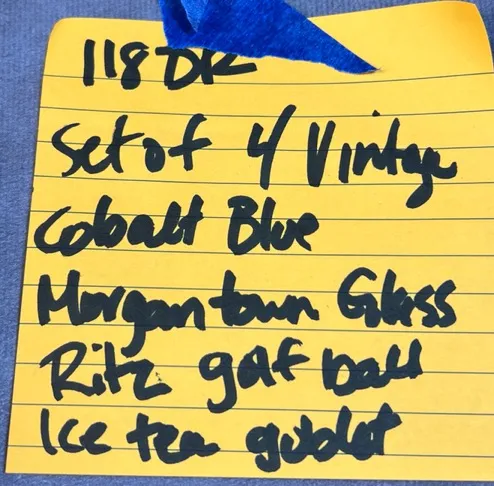 118 DR
Set of 4 Vintage
Cobalt Blue
Morgantown Glass
Ritz golf ball
Ice tea goblet